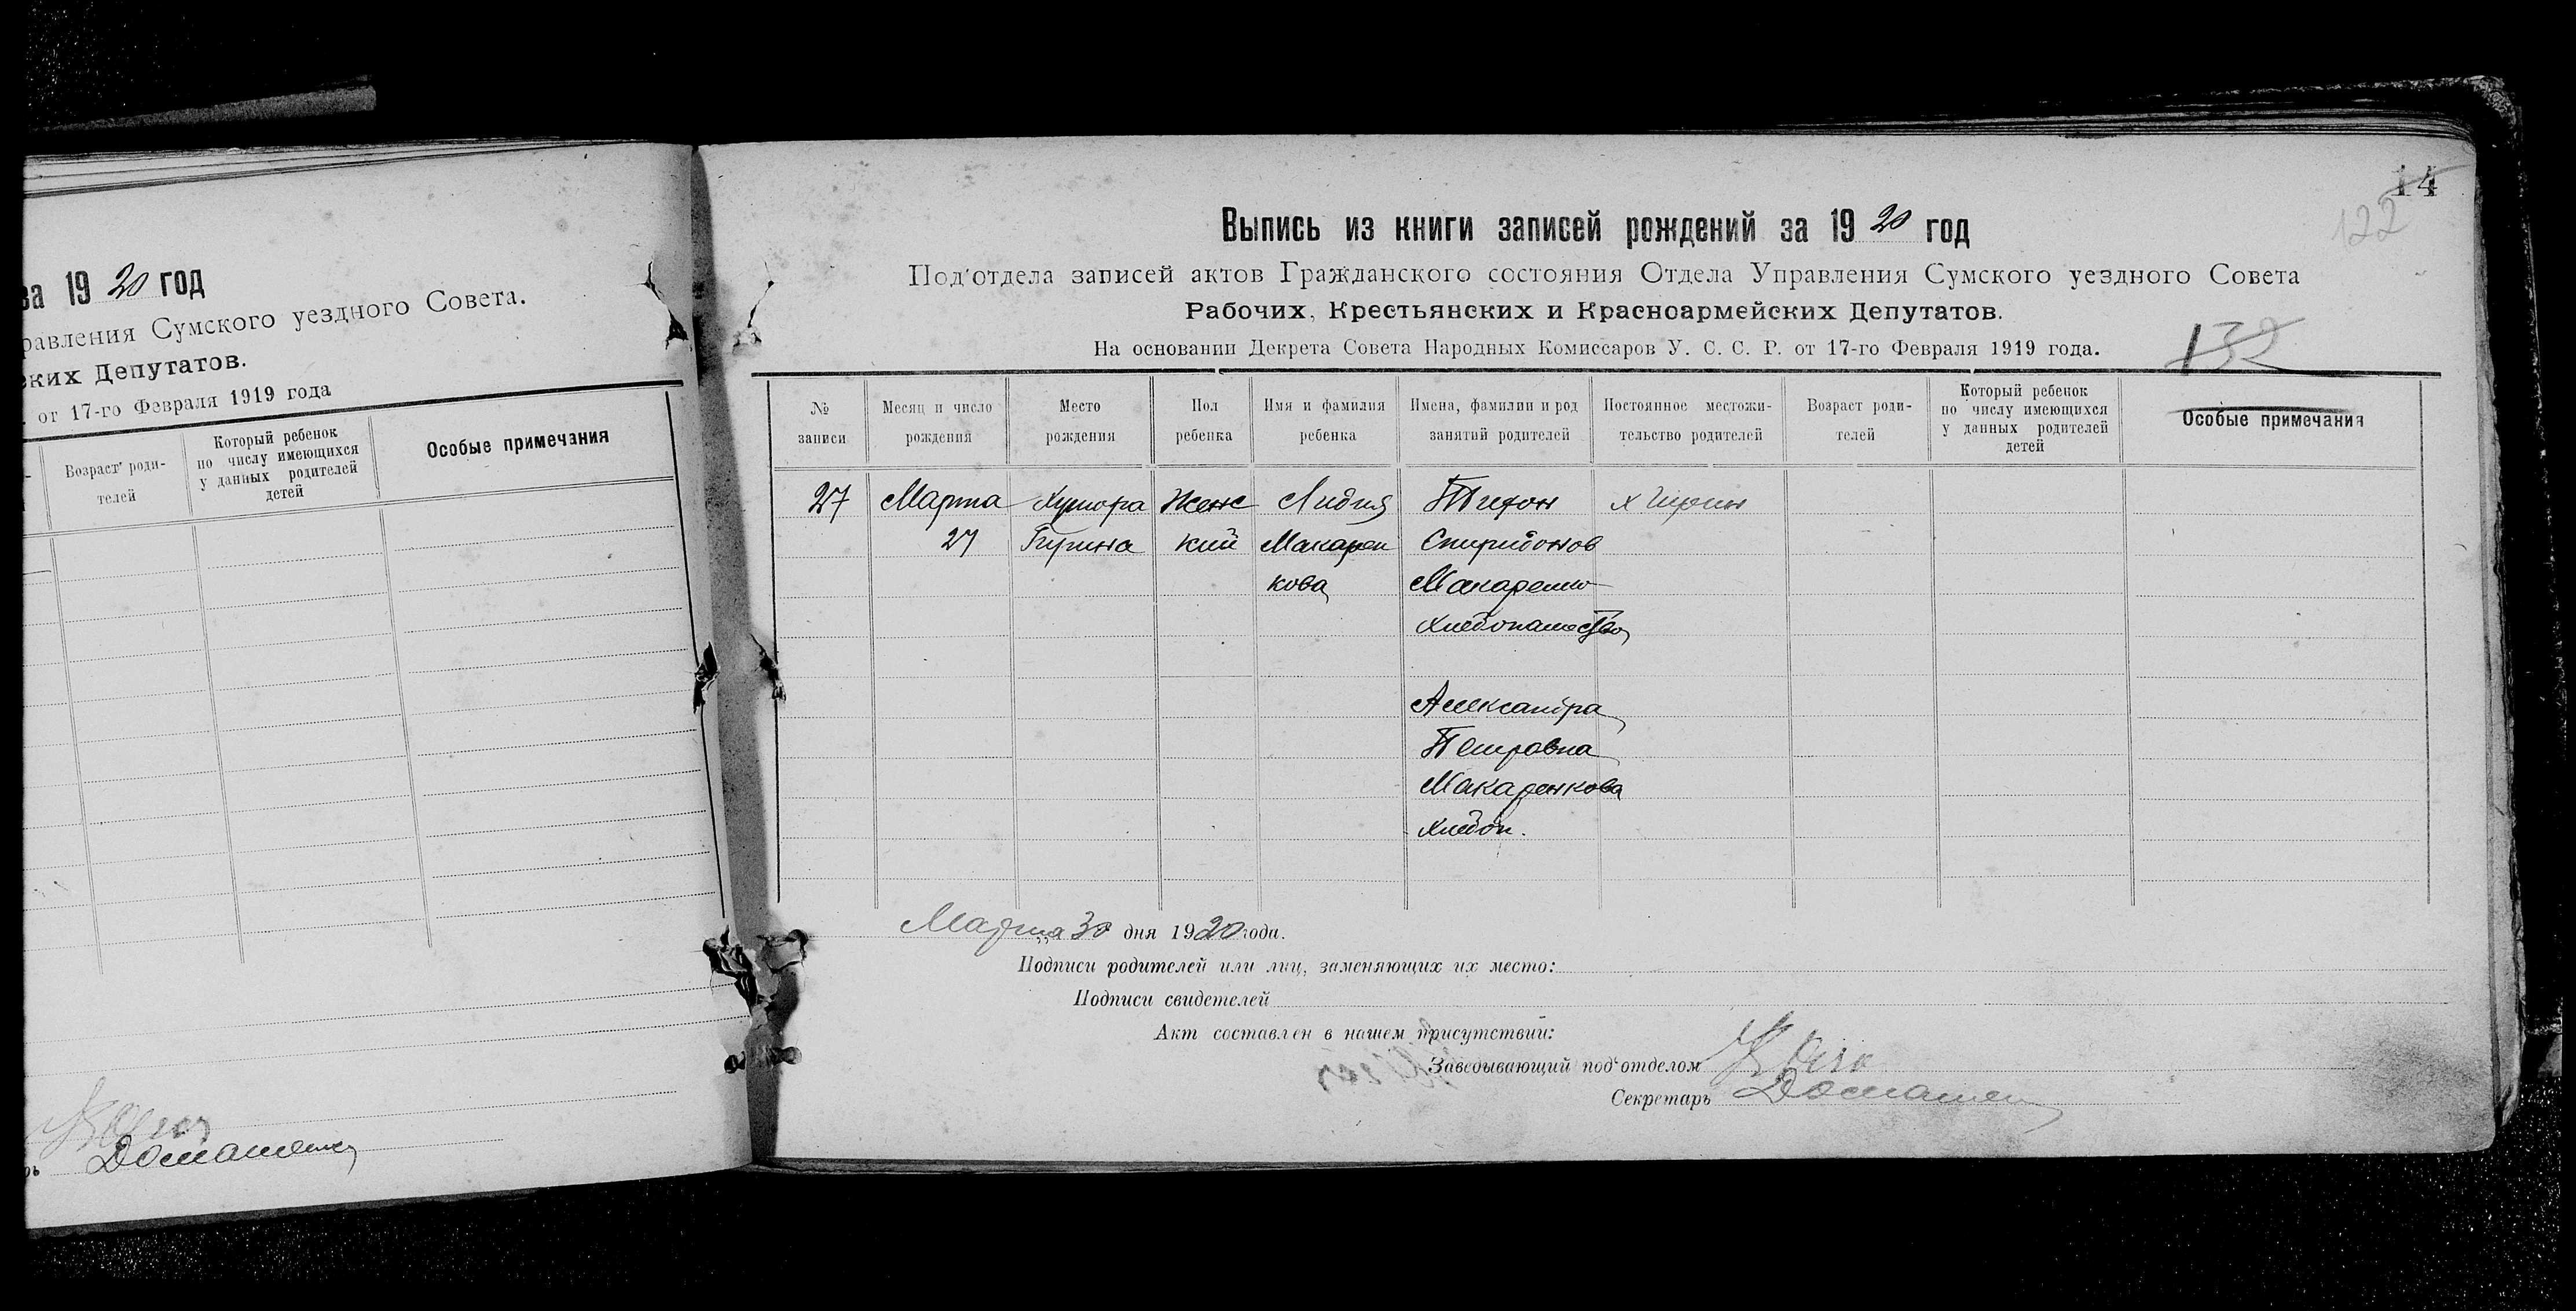 за 1920 год
равления Сумского уездного Совета.
ских Депутатов.
. от 17-го Февраля 1919 года
Возраст роди-
телей
Который ребенок
по числу имеющихся
у данных родителей
детей
Особые примечания
Домашенко
14
122
Выпись из книги записей рождений за 1920 год
Под'отдела записей актов Гражданского состояния Отдела Управления Сумского уездного Совета
Рабочих, Крестьянских и Красноармейских Депутатов.
На основании Декрета Совета Народных Комиссаров У. С. С. Р. от 17-го Февраля 1919 года.
132
№
записи
Месяц и число
рождения
Место
рождения
Пол
ребенка
Имя и фамилия
ребенка
Имена, фамилии и род
занятий родителей
Постоянное местожи-
тельство родителей
Возраст роди-
телей
Который ребенок
по числу имеющихся
у данных родителей
детей
Особые примечания
27 Марта Хутора Женс Лидия Тифон х
27 кий Макарен Спиридонов
кова Макаренко
Хлебопашество
Александра
Петровна
Макаренкова
Хлебоп.
Марта 30 дня 1920 года.
Подписи родителей или лиц, заменяющих их место:
Подписи свидетелей
Акт составлен в нашем присутствии:
Заведывающий под'отделом
Секретарь Домашенко